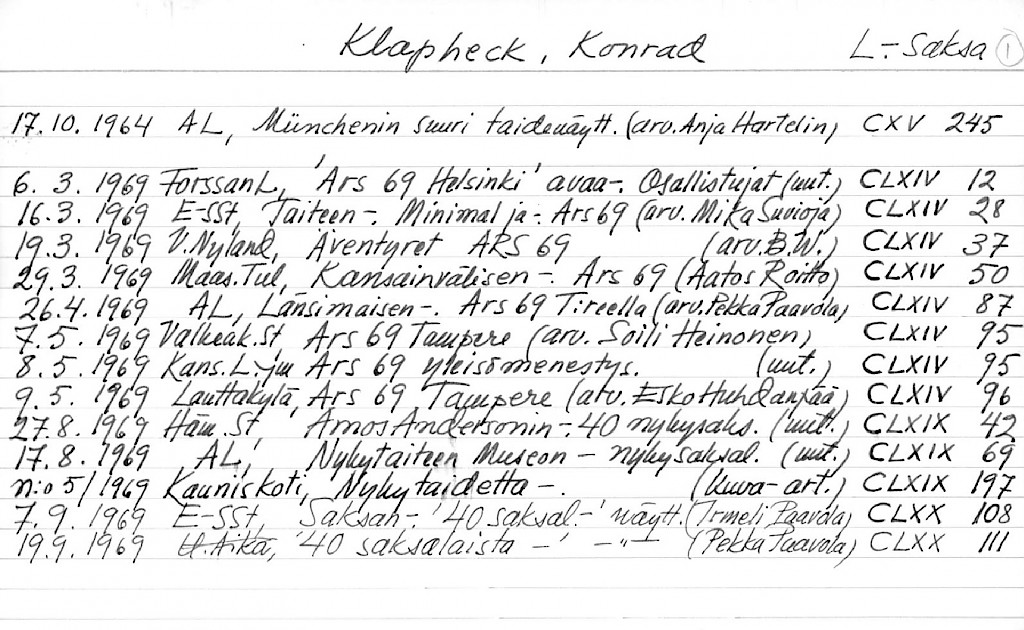 Klapheck, Konrad L.-Saksa 1
17.10.1964 AL, Münchenin suuri taidenäytt. (arv. Anja Hartelin) CXV 245
6. 3. 1969 Forssan L, 'Ars 69 Helsinki' avaa-. Osallistujat (uut.) CLXIV 12
16.3. 1969 E-SSt, Taiteen-. Minimal ja-. Ars 69 (arv. Mika Suvioja) CLXIV 28
19.3. 1969 V. Nyland, Äventyret ARS 69 (arv. B.W.) CLXIV 37
29.3. 1969 Maas.Tul, Kansainvälisen-. Ars 69 (Aatos Roitto) CLXIV 50
26.4. 1969 AL, Länsimaisen-. Ars 69 Treella (arv. Pekka Paavola) CLXIV 87
7.5. 1969 Valkeak. St Ars 69 Tampere (arv. Soili Heinonen) CLXIV 95
8.5. 1969 Kans. L.-jm Ars 69 yleisömenestys. (uut.) CLXIV 95
9.5. 1969 Lauttakylä, Ars 69 Tampere (arv. Esko Huhdanpää) CLXIV 96
27.8. 1969 Häm. St, Amos Andersonin-. 40 nykysaks. (uut.) CLXIX 42
17.8. 1969 AL, Nykytaiteen Museon- nykysaksal. (uut.) CLXIX 69
n:o 5/1969 Kauniskoti, Nykytaidetta-. (kuva-art.) CLXIX 197
7.9. 1969 E-SSt, Saksan-. '40 saksal.-' näytt. (Irmeli Paavola) CLXX 108
19.9. 1969 U. Aika, '40 saksalaista -' -"- (Pekka Paavola) CLXX 111